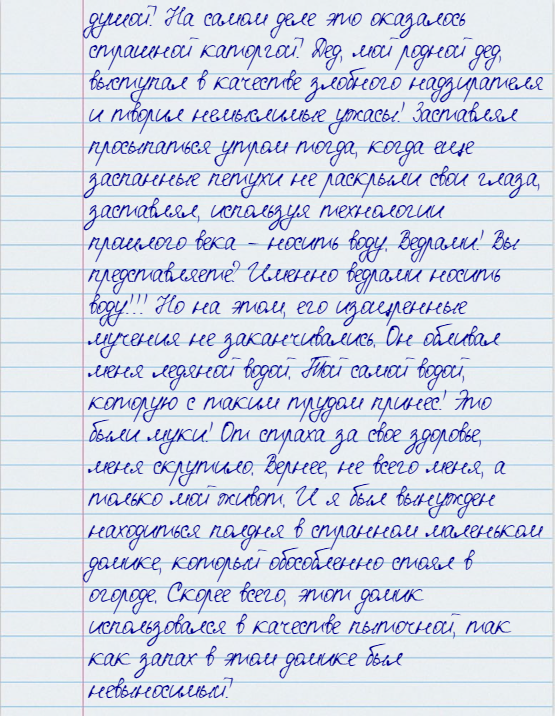 душой! На самом деле это оказалось
страшной каторгой! Дед, мой родной дед,
выступал в качестве злобного надзирателя
и творил немыслимые ужасы! Заставлял
просыпаться утром тогда, когда еще
заспанные петухи не раскрыли свои глаза,
заставлял, используя технологии
прошлого века – носить воду. Ведрами! Вы
представляете? Именно ведрами носить
воду!!! Но на этом, его изощренные
мучения не заканчивались. Он обливал
меня ледяной водой. Той самой водой,
которую с таким трудом принес! Это
были муки! От страха за свое здоровье,
меня скрутило. Вернее, не всего меня, а
только мой живот. И я был вынужден
находиться полдня в странном маленьком
домике, который обособленно стоял в
огороде. Скорее всего, этот домик
использовался в качестве пыточной, так
как запах в этом домике был
невыносимый!